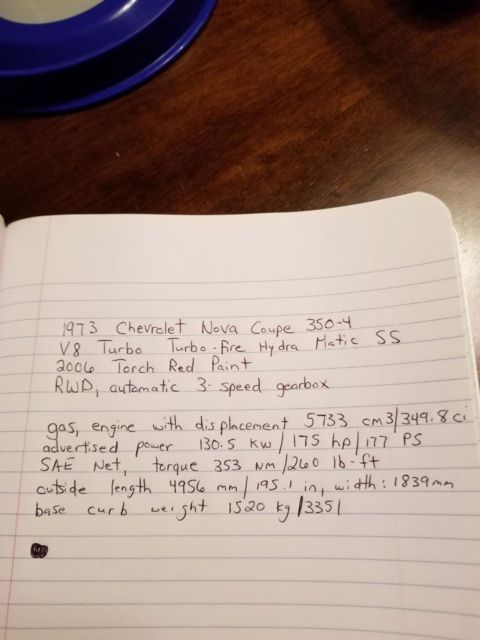 1973 Chevrolet Nova Coupe 350-4
V8 Turbo Turbo-fire Hydra Matic SS
2006 Torch Red Paint
RWD, automatic 3-speed gearbox
gas, engine with displacement 5733 cm3/349.8 ci
advertised power 130.5 kw/175 hp/177 PS
SAE Net, torque 353 Nm/260 lb-ft
outside length 4956 mm/195.1 in, width: 1839mm
base curb weight 1520 kg/3351